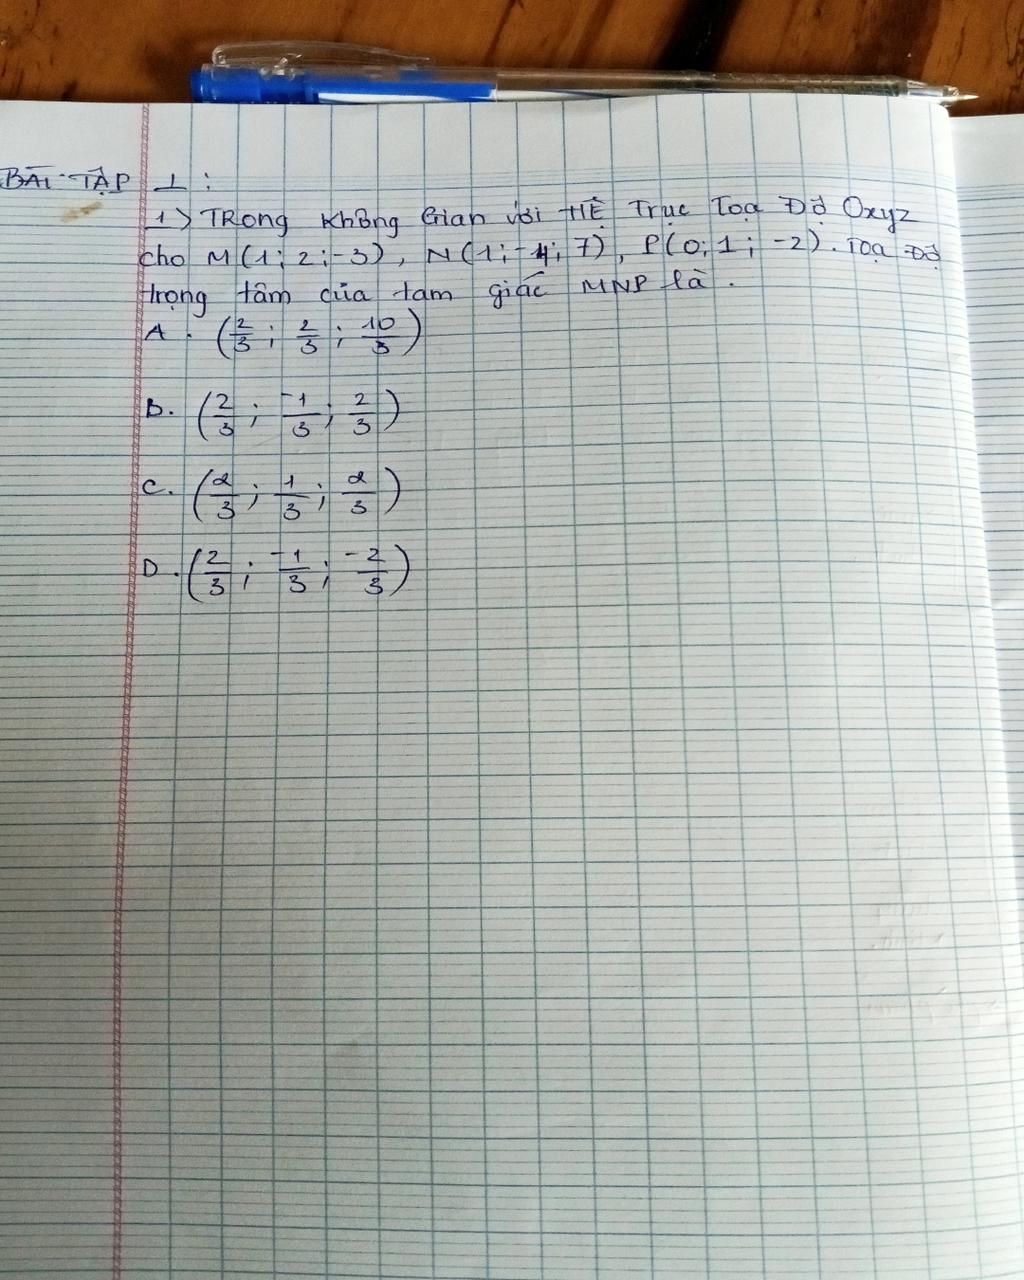 BÀI TẬP 1:
1) TRong không Gian với HỆ Trục Toạ Độ Oxyz
cho M(1; 2; -3), N(1; -4; 7), P(0; 1; -2). Toạ Độ
trọng tâm của tam giác MNP là.
A. (2/3; 2/3; 10/3)
B. (2/3; -1/3; 2/3)
C. (2/3; 1/3; 2/3)
D. (2/3; -1/3; -2/3)